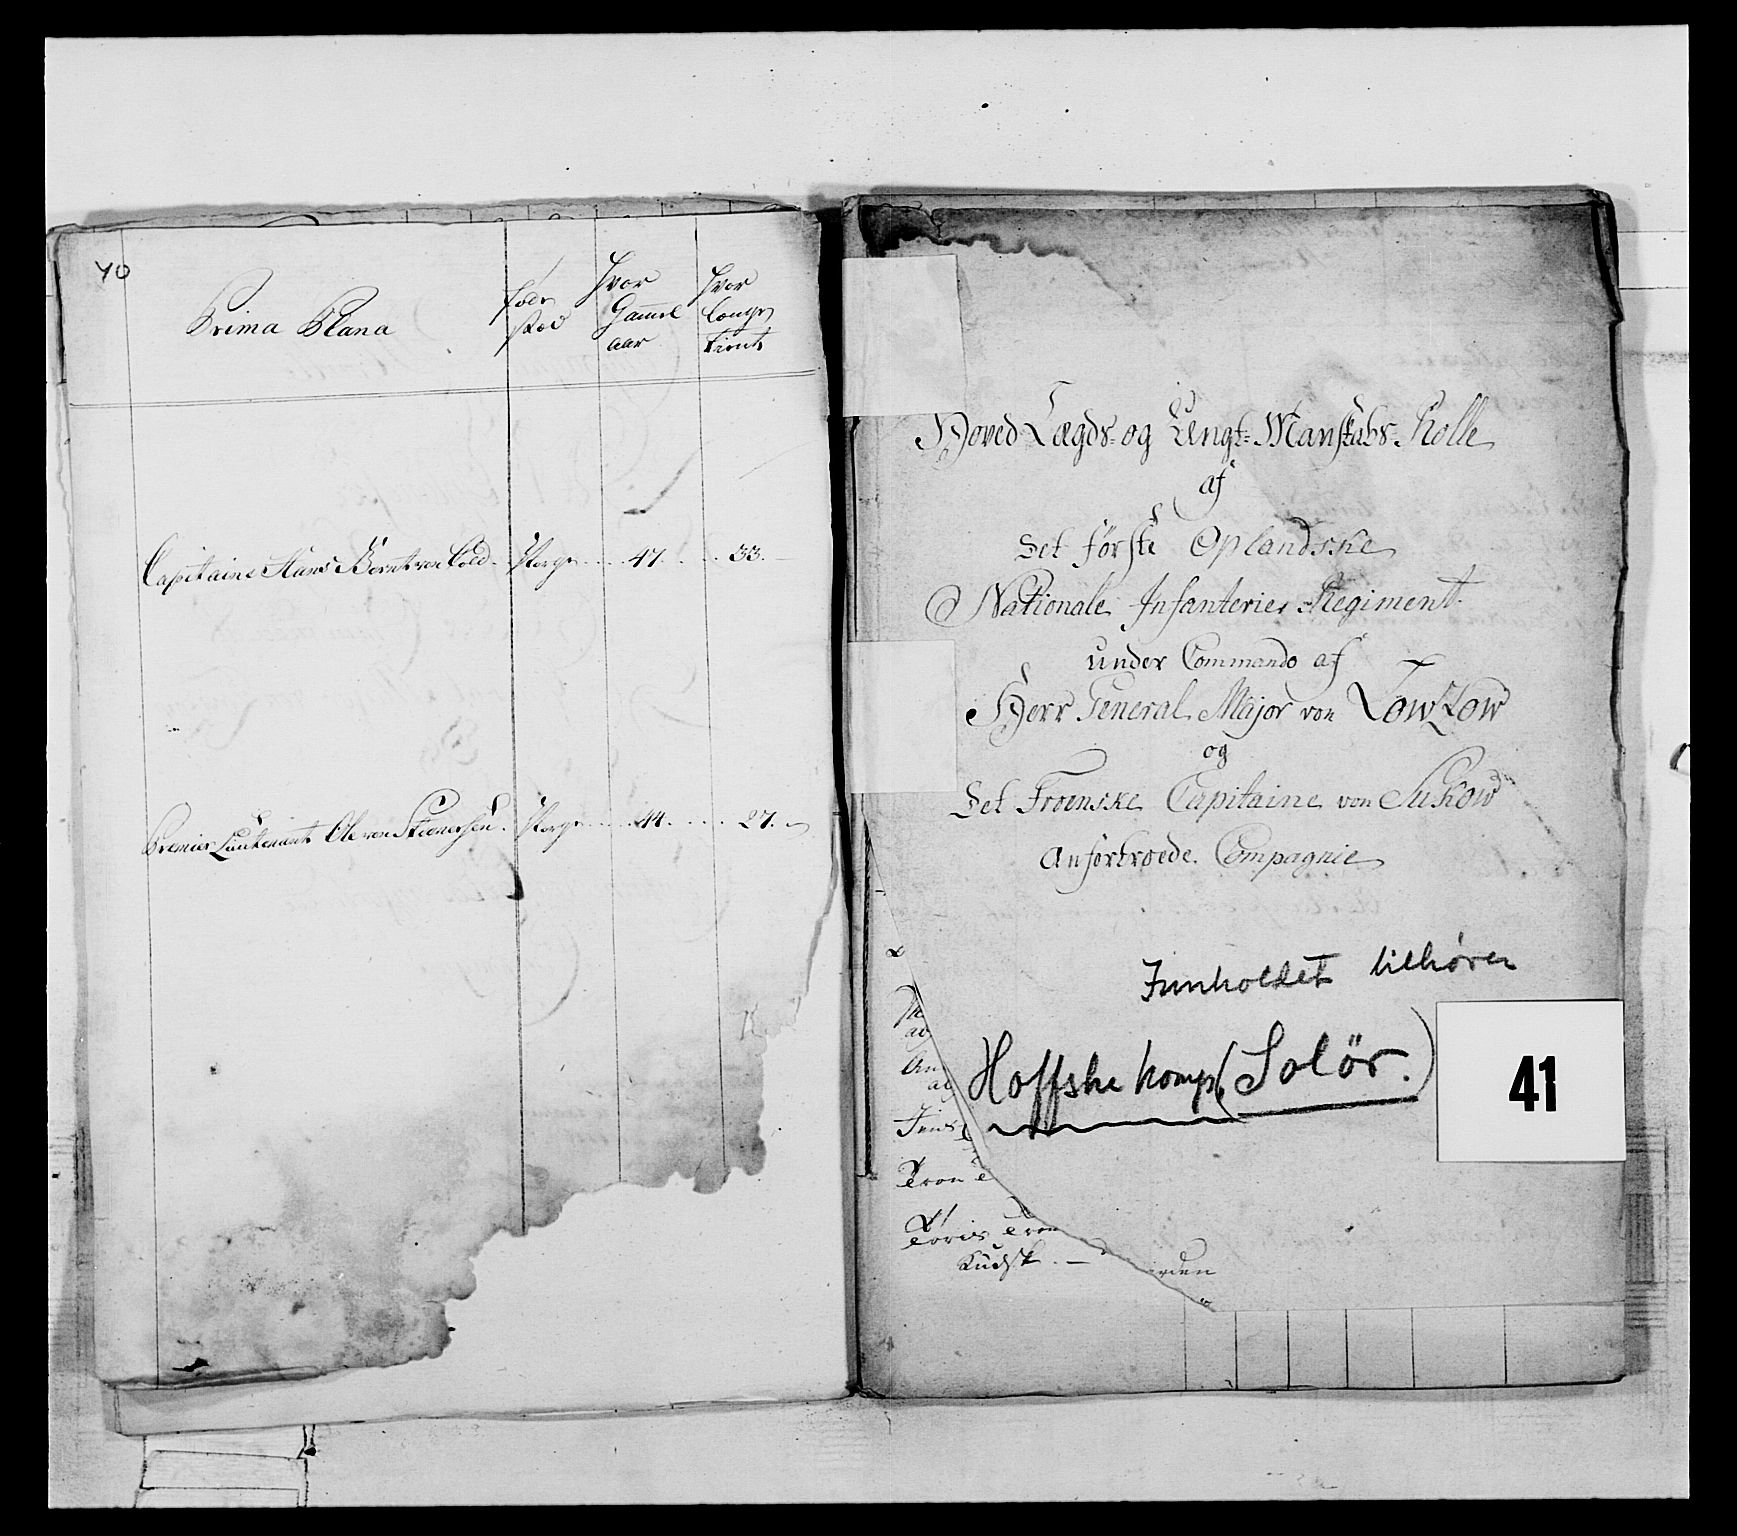 40
Prima Plana
føde
stæd
hvor
Gammel
aar
hvor
længe
tient
Capitaine Hans Bernt von Cold. Norge 47. 33.
Premier Lieutenant Ole von Skienersen. Norge 44. 27.
Hoved Lægds- og Ungt-Manskabs-Rolle
af
Det første Oplandske
Nationale Infanterie Regiment
under Commando af
Herr General Major von Lowzow
og
Det Troenske Capitaine von Sukow
Anfortroede Compagnie
Innholdet tilhører
Hoffske komp. (Solör.)
41
Tron
Toris Tron
Kudsk. — erden